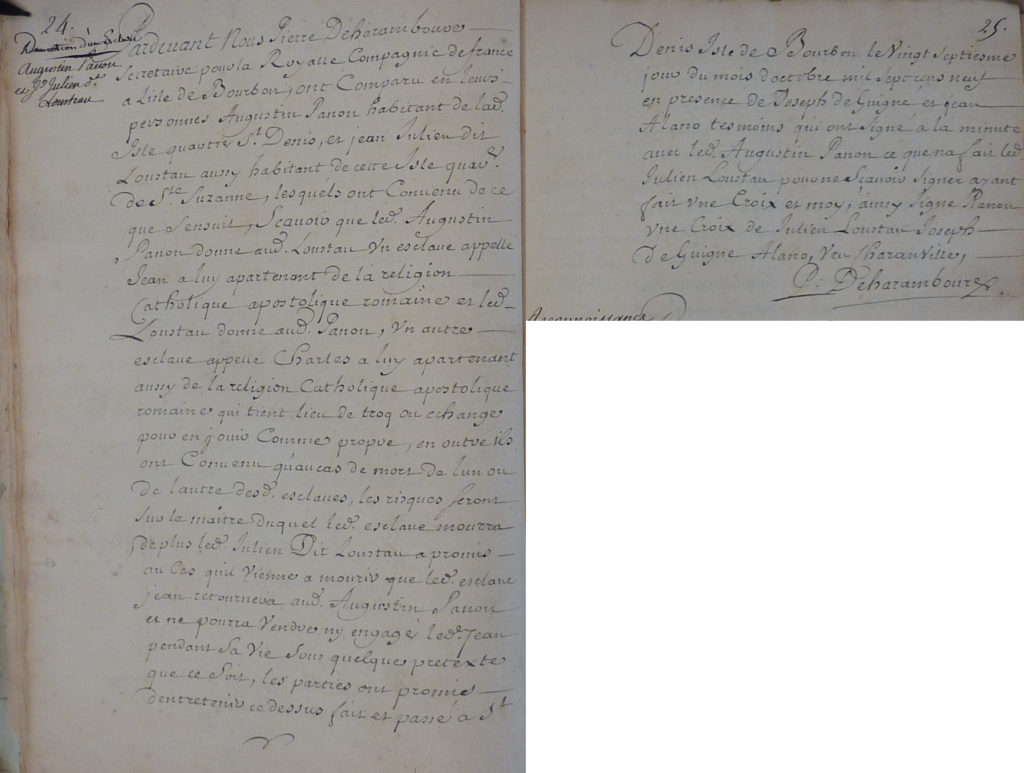 24.
Donation d'un Esclave
Augustin Panon
et Jn Julien dt.
Loustau
Pardevant Nous Pierre Deharamboure
Secretaire pour la Royalle Compagnie de france
a Lisle de Bourbon, ont Comparu en leurs
personnes Augustin Panon habitant de lade.
Isle quartier St. Denis, et jean Julien dit
Loustau aussy habitant de cette Isle quar.
de Ste. Suzanne, lesquels ont Convenu de ce
que Sensuit, Scavoir que led. Augustin
Panon donne aud. Loustau Un esclave appellé
Jean a luy apartenent de la religion
Catholique apostolique romaine et led.
Loustau donne aud. Panon, Un autre
esclave appellé Charles a luy apartenant
aussy de la religion Catholique apostolique
romaine qui tient lieu de troq ou echange
pour en jouir Comme propre, en outre ils
ont Convenu qu'au cas de mort de lun ou
de lautre desd. esclaves, les risques seront
sur le maître duquel led. esclave mourra
deplus led. Julien Dit Loustau a promis
au Cas quil Vienne a mourir que led. esclave
jean retournera aud. Augustin Panon
et ne pourra Vendre ny engagé led. Jean
pendant Sa Vie Sous quelque pretexte
que ce Soit, les parties ont promis
dentretenir ce dessus fait et passé a St
25.
Denis Isle de Bourbon le Vingt Septiesme
jour du mois d'octobre mil Sept cens neuf
en presence de Joseph de Guigné et jean
Alano tesmoins qui ont Signé a la minute
avec led. Augustin Panon ce que na fait led.
Julien Loustau pour ne Scavoir Signer ayant
fait Une Croix et moy, ainsy Signe Panon
Une Croix de Julien Loustau Joseph
De Guigne Alano, Veu Charanville,
P. Deharamboure